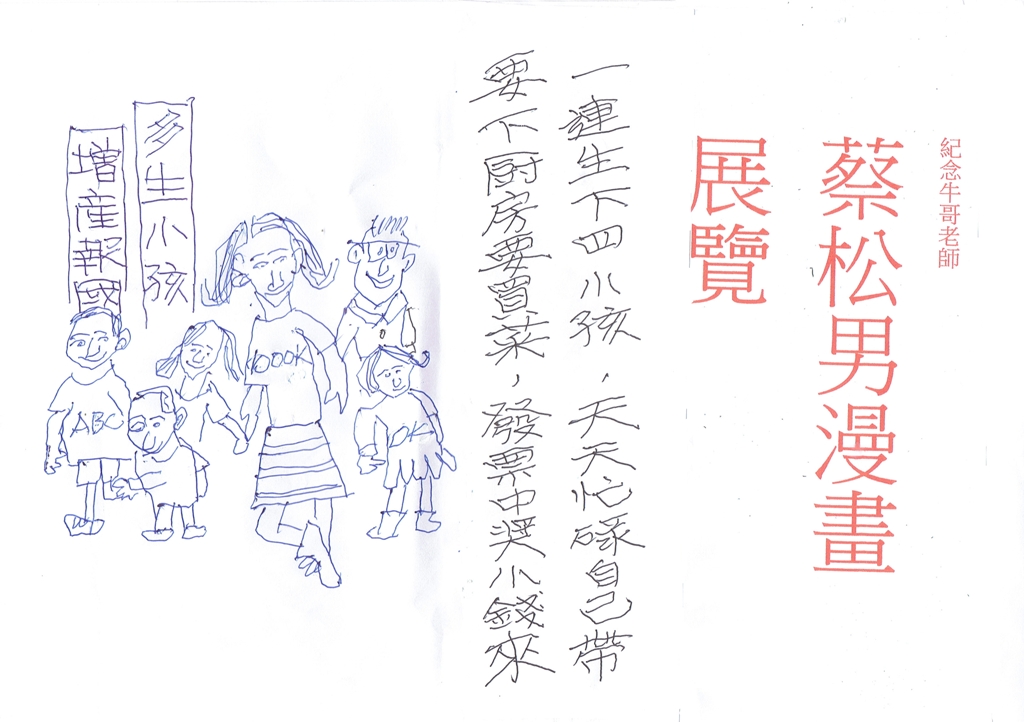 紀念牛哥老師
蔡松男漫畫
展覽
一連生下四小孩，天天忙碌自己帶
要下厨房要買菜，發票中獎小錢來
多生小孩
增產報國
BOOK
ABC
OK